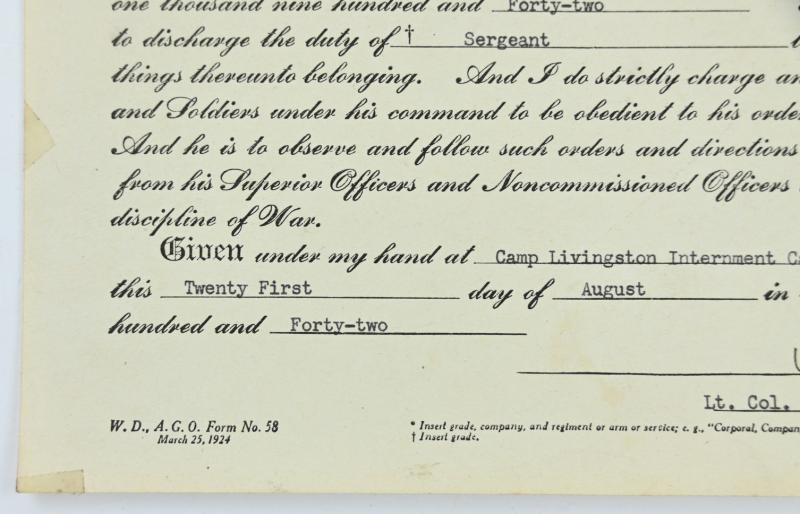 one thousand nine hundred and Forty-two
to discharge the duty of † Sergeant
things thereunto belonging. And I do strictly charge
and Soldiers under his command to be obedient to his
And he is to observe and follow such orders and directions
from his Superior Officers and Noncommissioned Officers
discipline of War.
Given under my hand at Camp Livingston Internment
this Twenty First day of August in
hundred and Forty-two
Lt. Col.
W. D., A. G. O. Form No. 58
March 25, 1924
* Insert grade, company, and regiment or arm or service; e. g., "Corporal,
† Insert grade.